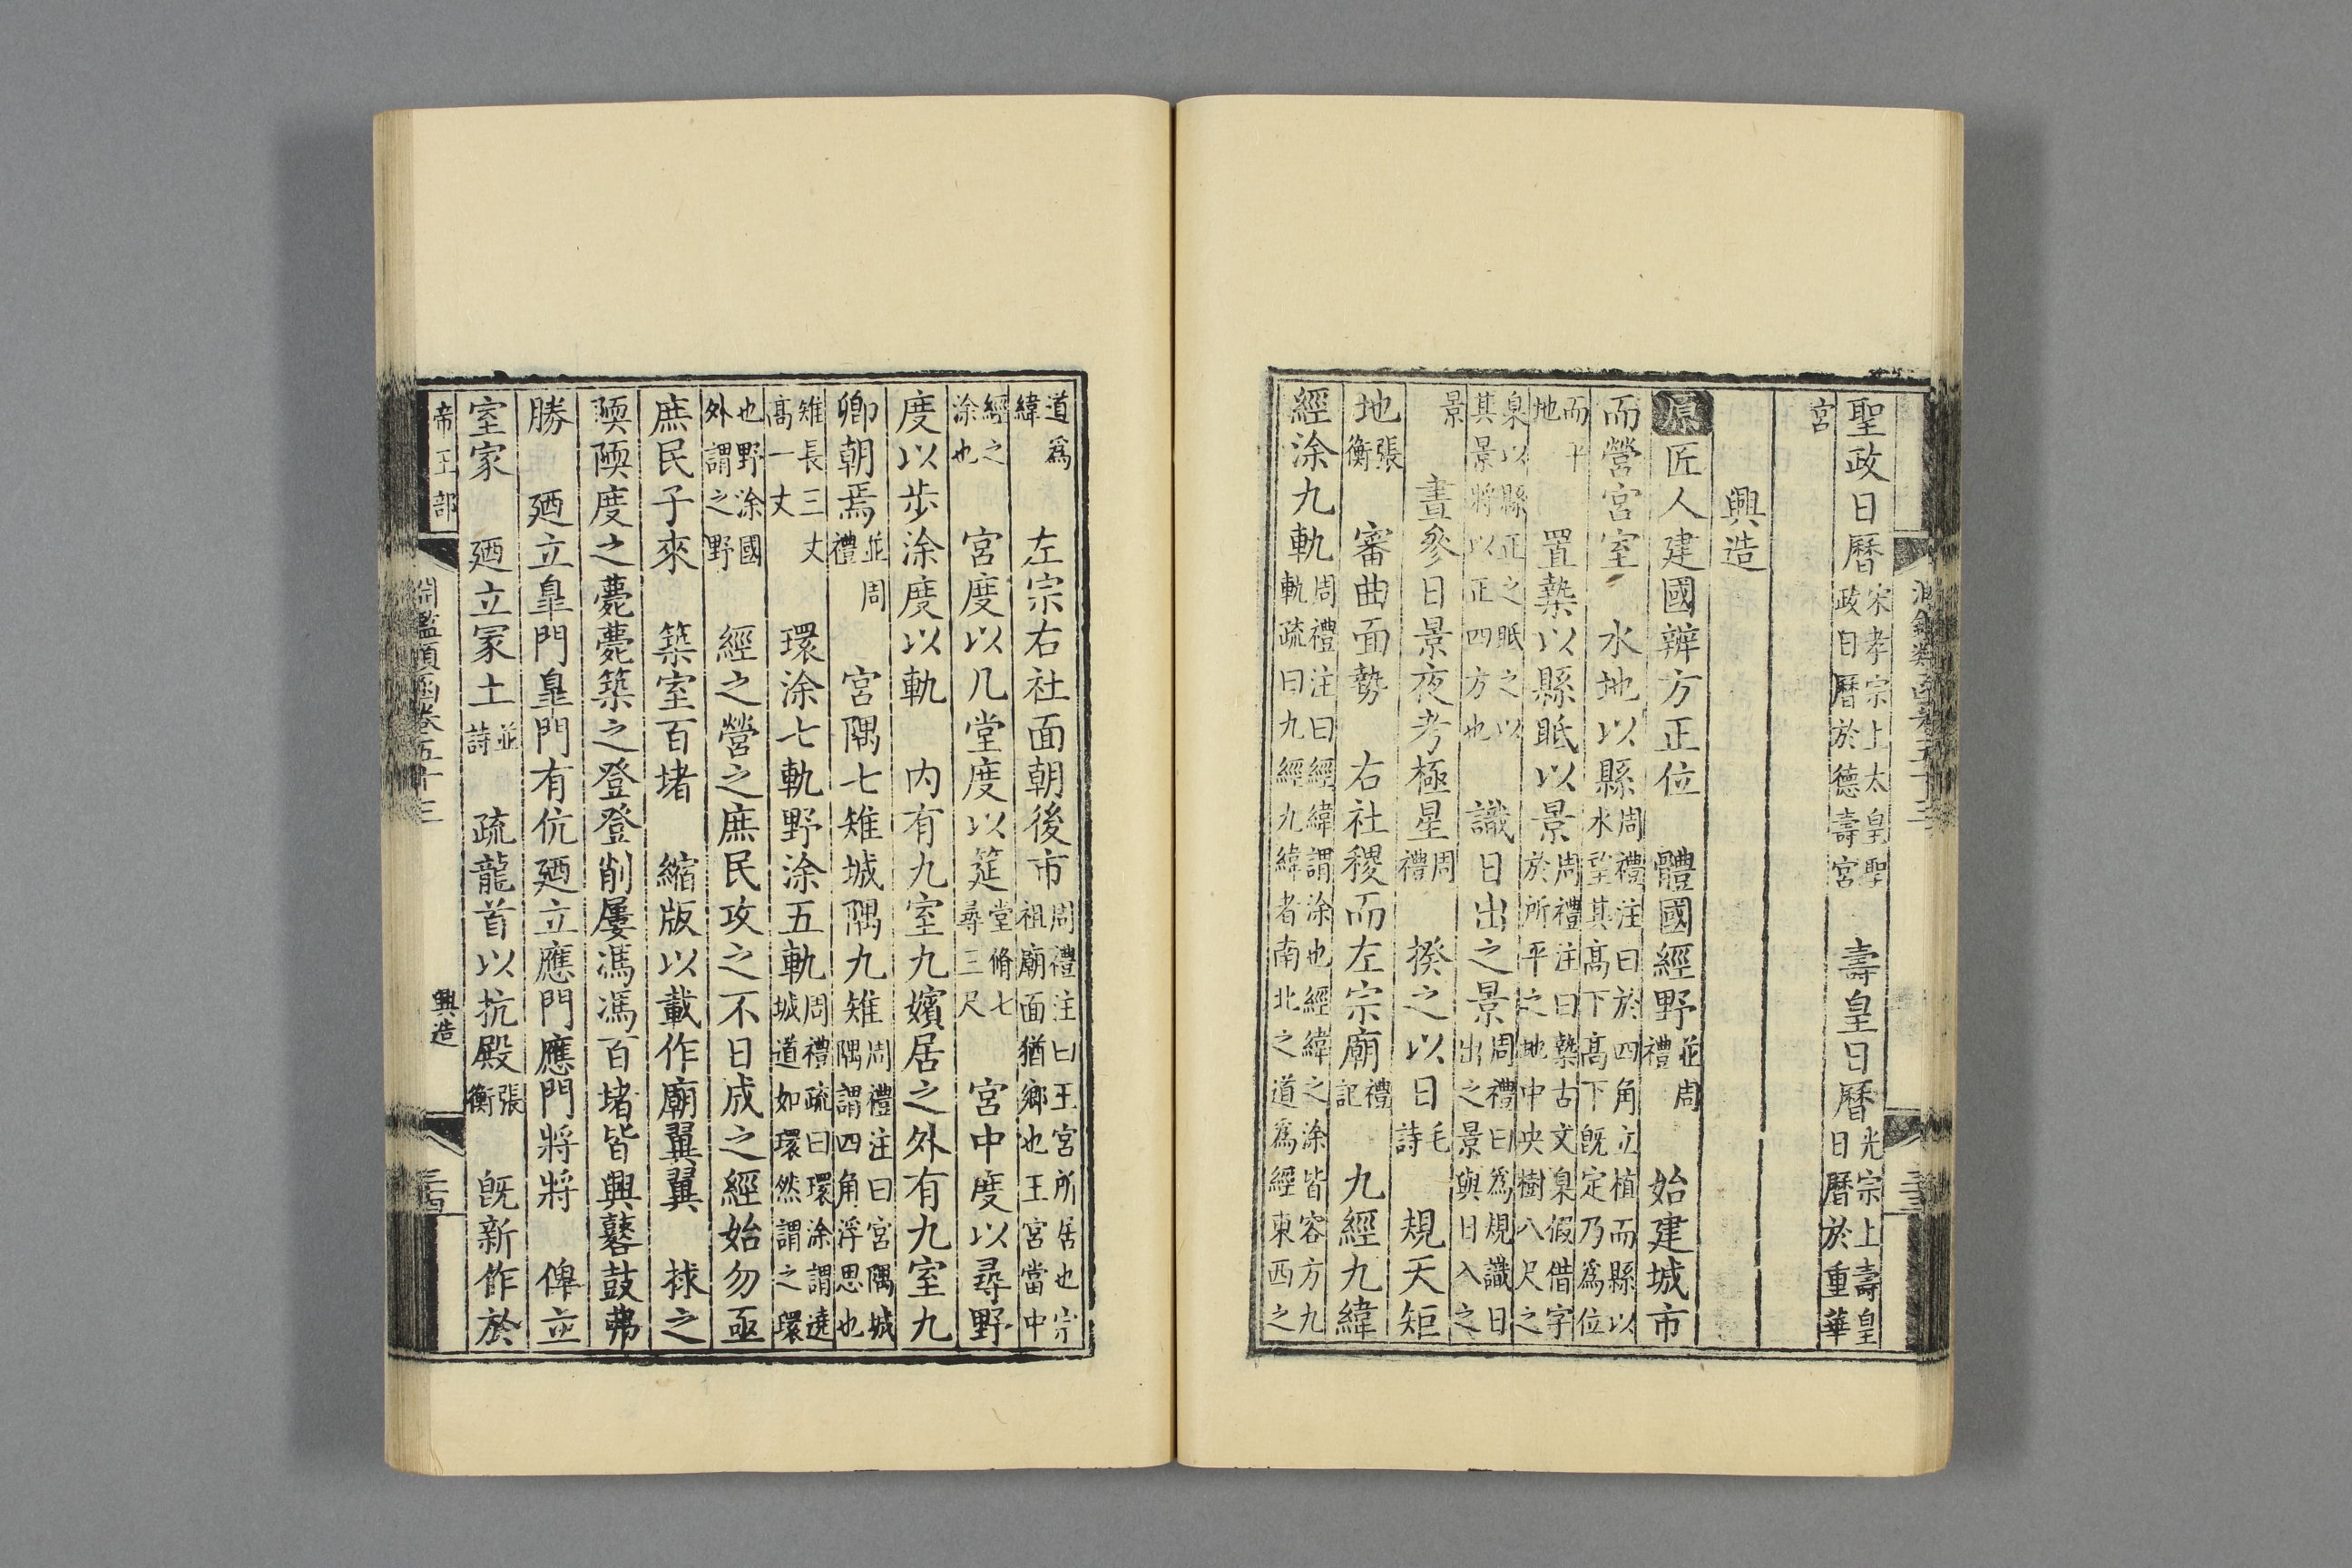 聖政日曆宋孝宗上太皇聖政日曆於德壽宮 壽皇日曆光宗上壽皇日曆於重華
宮
興造
原匠人建國辨方正位 體國經野並周禮 始建城市
而營宮室 水地以縣周禮注曰於四角立植而縣以水望其高下高下旣定乃爲位
而平地 置槷以縣眡以景周禮注曰槷古文臬假借字於所平之地中央樹八尺之
臬以縣正之眡之以其景將以正四方也 識日出之景周禮曰爲規識日出之景與日入之
景 晝參日景夜考極星周禮 揆之以日毛詩 規天矩
地張衡 審曲面勢 右社稷而左宗廟禮記 九經九緯
經涂九軌周禮注曰經緯謂涂也經緯之涂皆容方九軌疏曰九經九緯者南北之道爲經東西之
道爲緯 左宗右社面朝後市周禮注曰王宮所居也宗祖廟面猶鄉也王宮當中
經之涂也 宮度以几堂度以筵堂脩七尋三尺 宮中度以尋野
度以步涂度以軌 內有九室九嬪居之外有九室九
卿朝焉並周禮 宮隅七雉城隅九雉周禮注曰宮隅城隅謂四角浮思也
雉長三丈高一丈 環涂七軌野涂五軌周禮疏曰環涂謂遶城道如環然謂之環
也野涂國外謂之野 經之營之庶民攻之不日成之經始勿亟
庶民子來 築室百堵 縮版以載作廟翼翼 捄之
陾陾度之薨薨築之登登削屢馮馮百堵皆興鼛鼓弗
勝 廼立臯門臯門有伉廼立應門應門將將 俾立
室家 廼立冢土並詩 疏龍首以抗殿張衡 旣新作於
帝王部 淵鑑類函卷五十三 興造